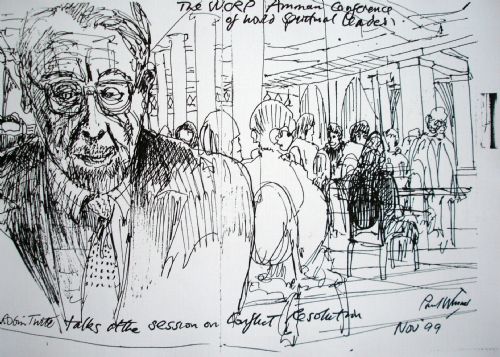 The WCRP Amman Conference
of World Spiritual Leaders
talks at the session on Conflict Resolution
Nov 99